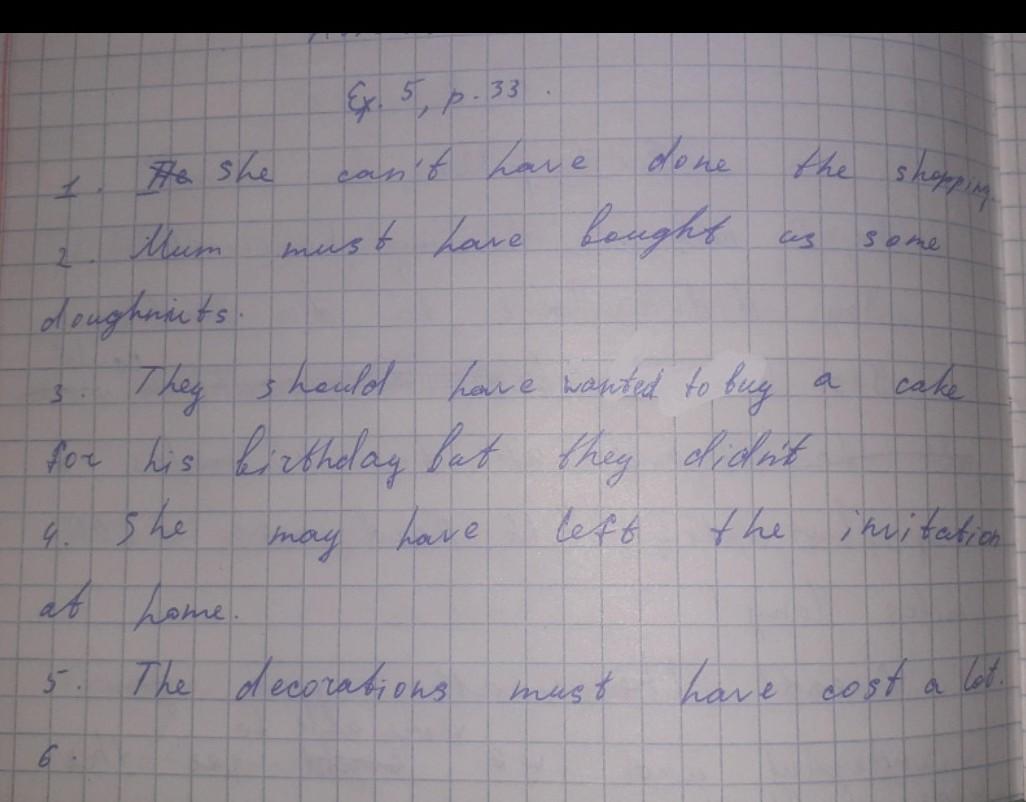 Ex. 5, p. 33.
1. She can't have done the shopping.
2. Mum must have bought us some
doughnuts.
3. They should have wanted to buy a cake
for his birthday but they didn't
4. She may have left the invitation
at home.
5. The decorations must have cost a lot.
6.